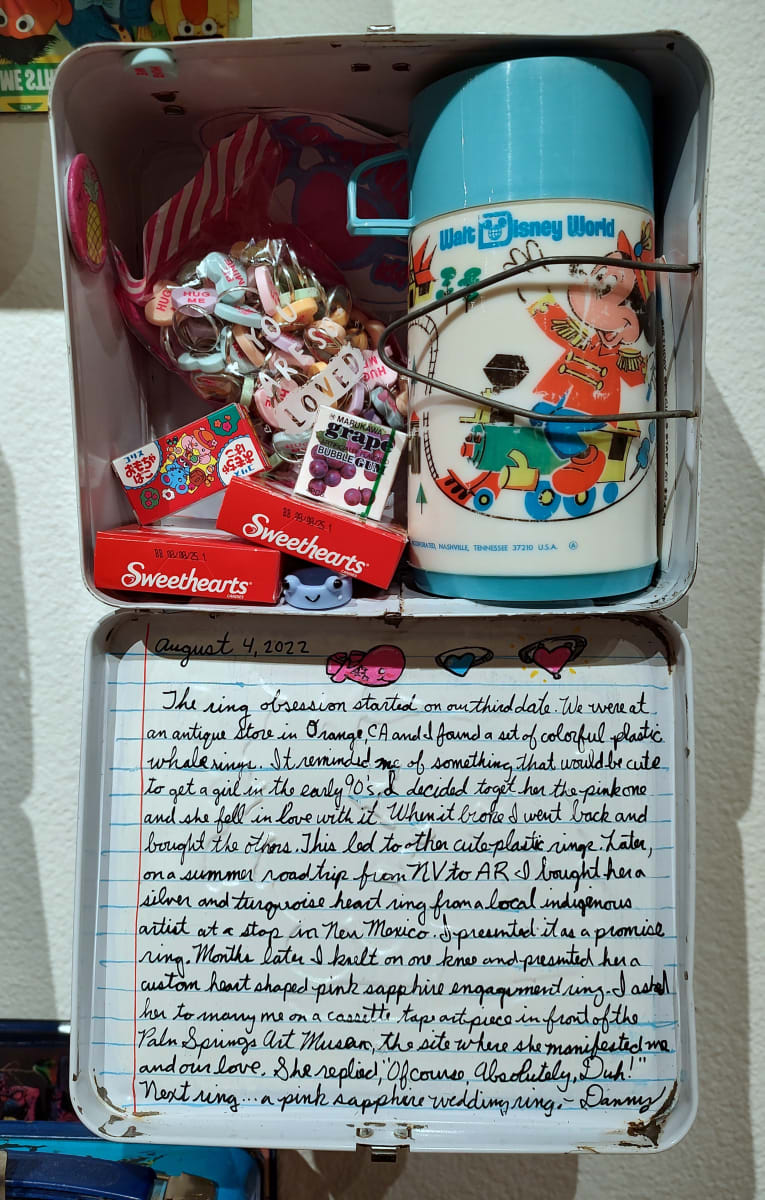 Walt Disney World
HUG ME
HUG ME
YOU
ARE SO
LOVED
HUG ME
MARUKAWA
grape
BUBBLE GUM
コリス
おもちゃ
ばこ
おもちゃ
ばこ
Sweethearts
CANDIES
Sweethearts
CANDIES
NASHVILLE, TENNESSEE 37210 U.S.A.
August 4, 2022
The ring obsession started on our third date. We were at
an antique store in Orange, CA and I found a set of colorful plastic
whale rings. It reminded me of something that would be cute
to get a girl in the early 90's. I decided to get her the pink one
and she fell in love with it. When it broke I went back and
bought the others. This led to other cute plastic rings. Later,
on a summer road trip from NV to AR I bought her a
silver and turquoise heart ring from a local indigenous
artist at a stop in New Mexico. I presented it as a promise
ring. Months later I knelt on one knee and presented her a
custom heart shaped pink sapphire engagement ring. I asked
her to marry me on a cassette tape art piece in front of the
Palm Springs Art Museum, the site where she manifested me
and our love. She replied, "Of course, Absolutely, Duh!"
Next ring... a pink sapphire wedding ring. - Danny